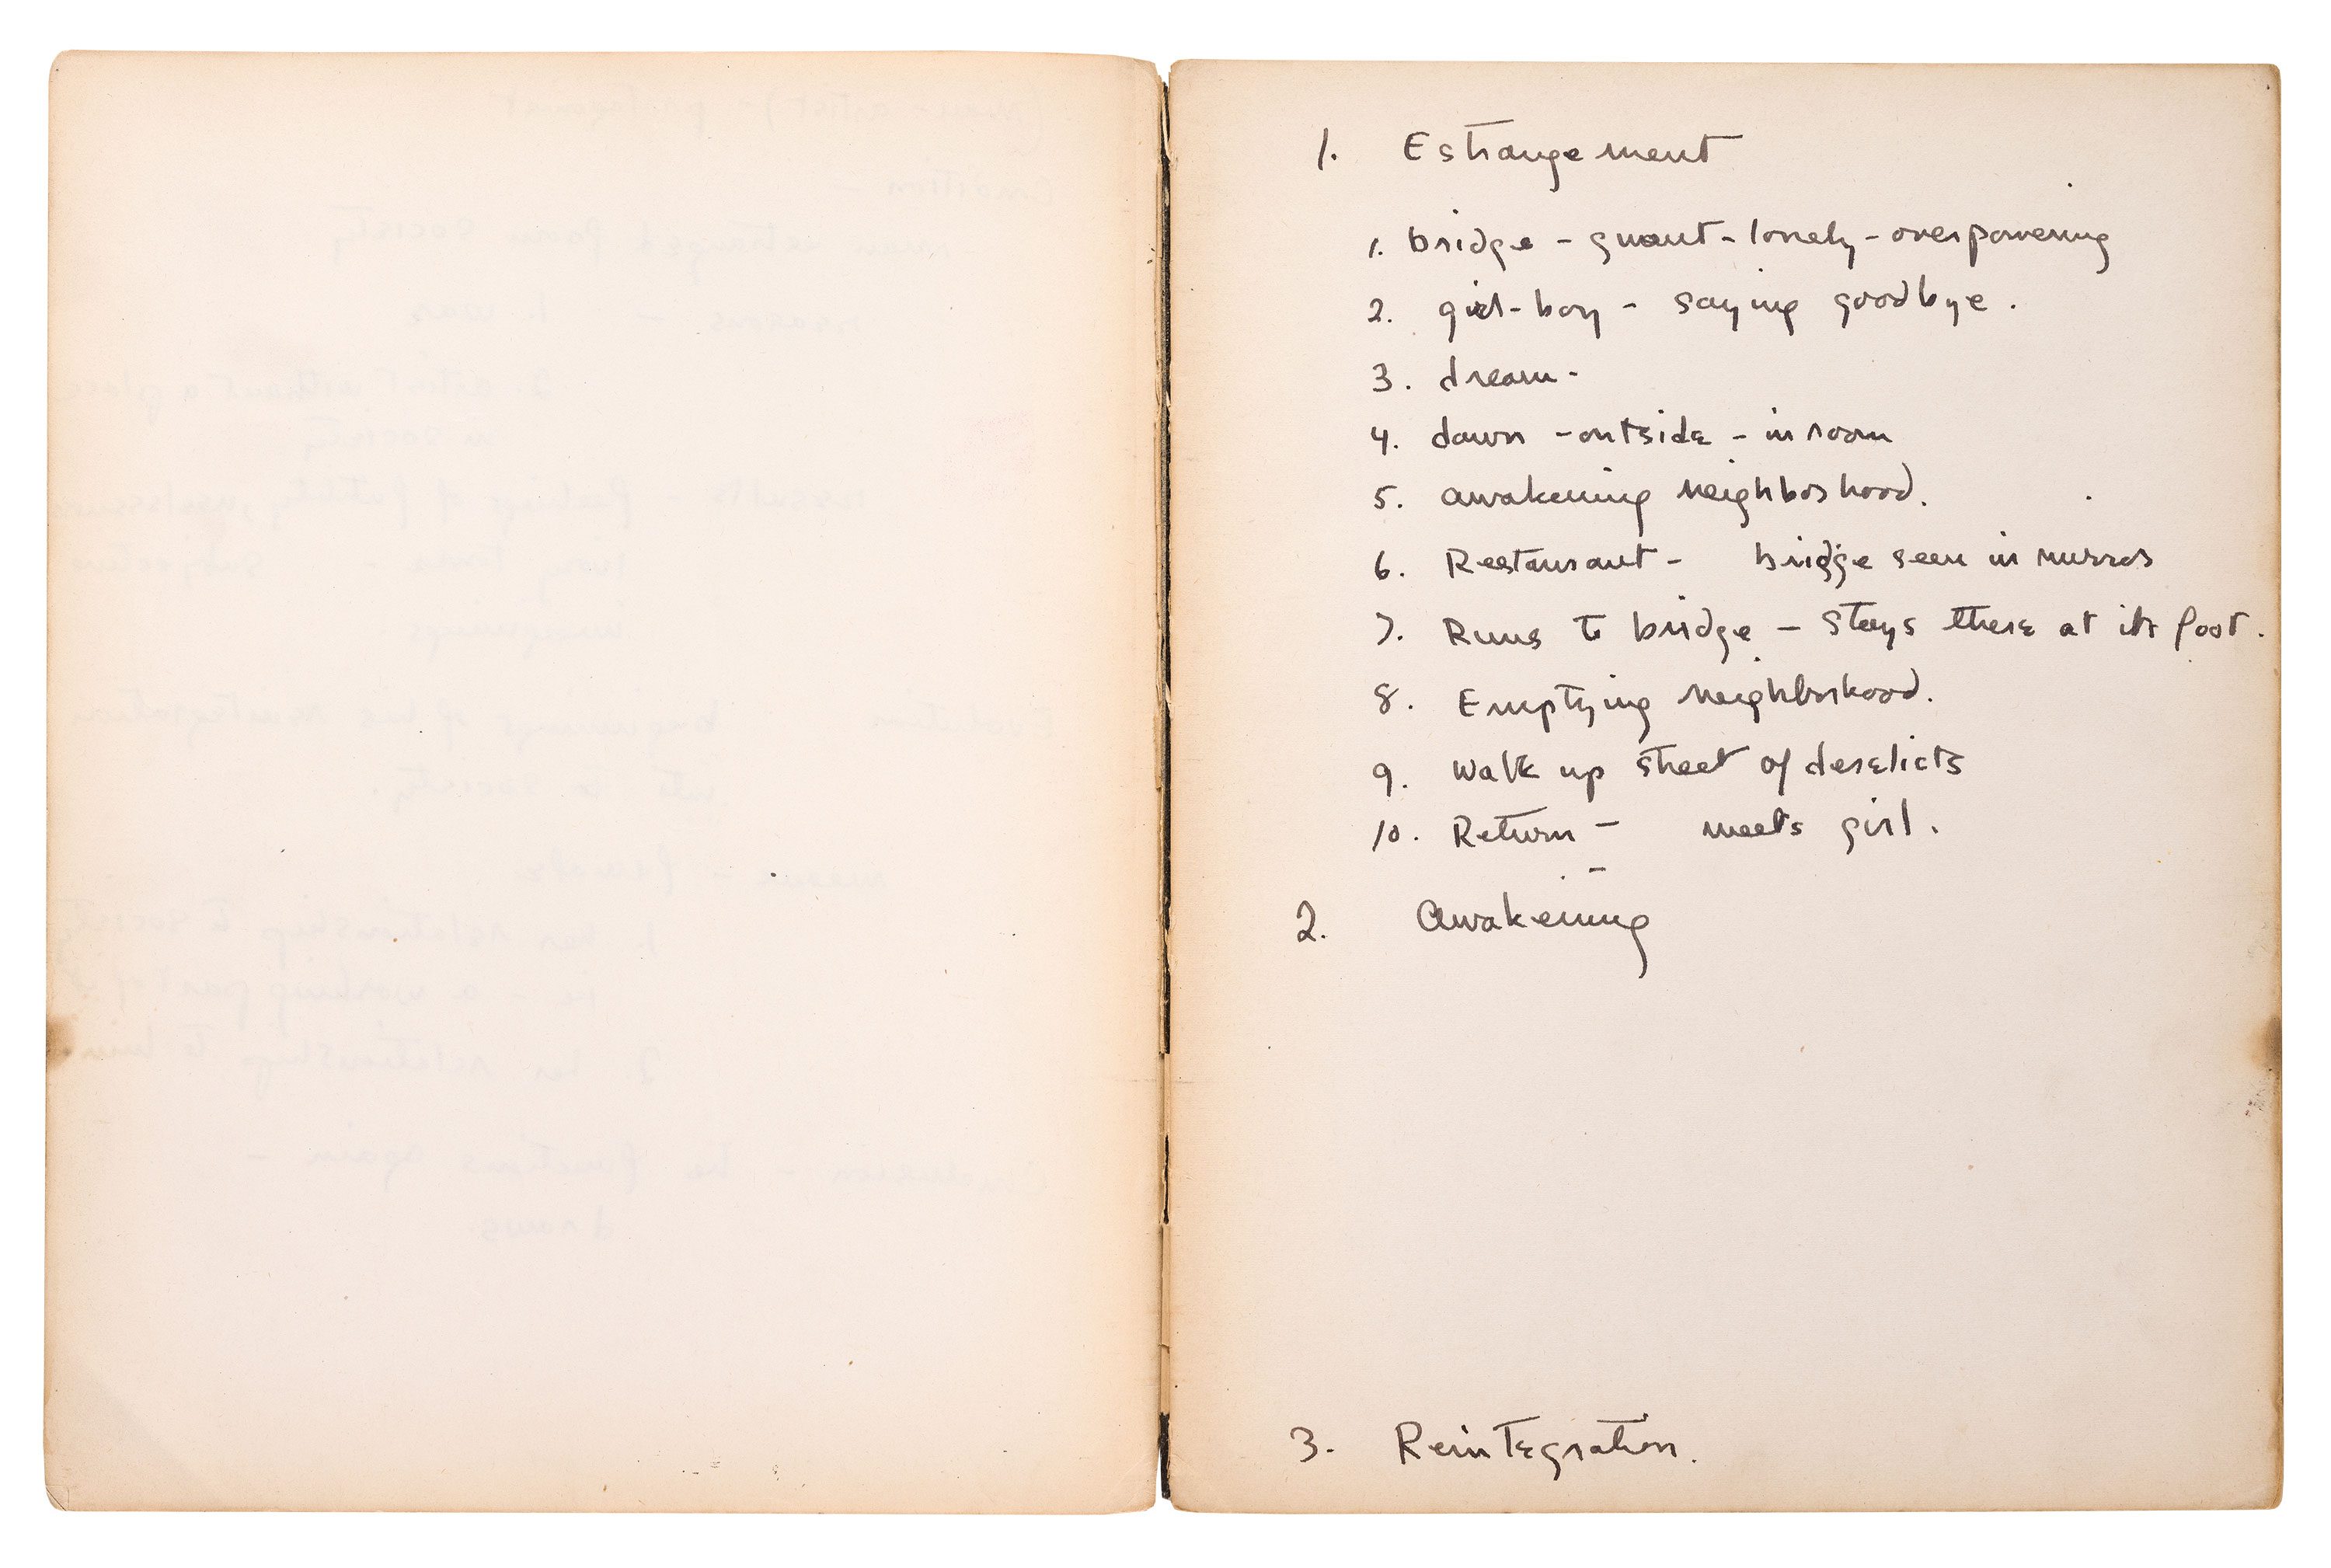 1. Estrangement
1. bridge - gaunt - lonely - overpowering
2. girl - boy - saying goodbye.
3. dream -
4. dawn - outside - in room
5. awakening neighborhood.
6. Restaurant - bridge seen in mirror
7. Runs to bridge - stays there at its foot.
8. Emptying neighborhood.
9. Walk up street of derelicts
10. Return - meets girl.
2. Awakening
3. Reintegration.